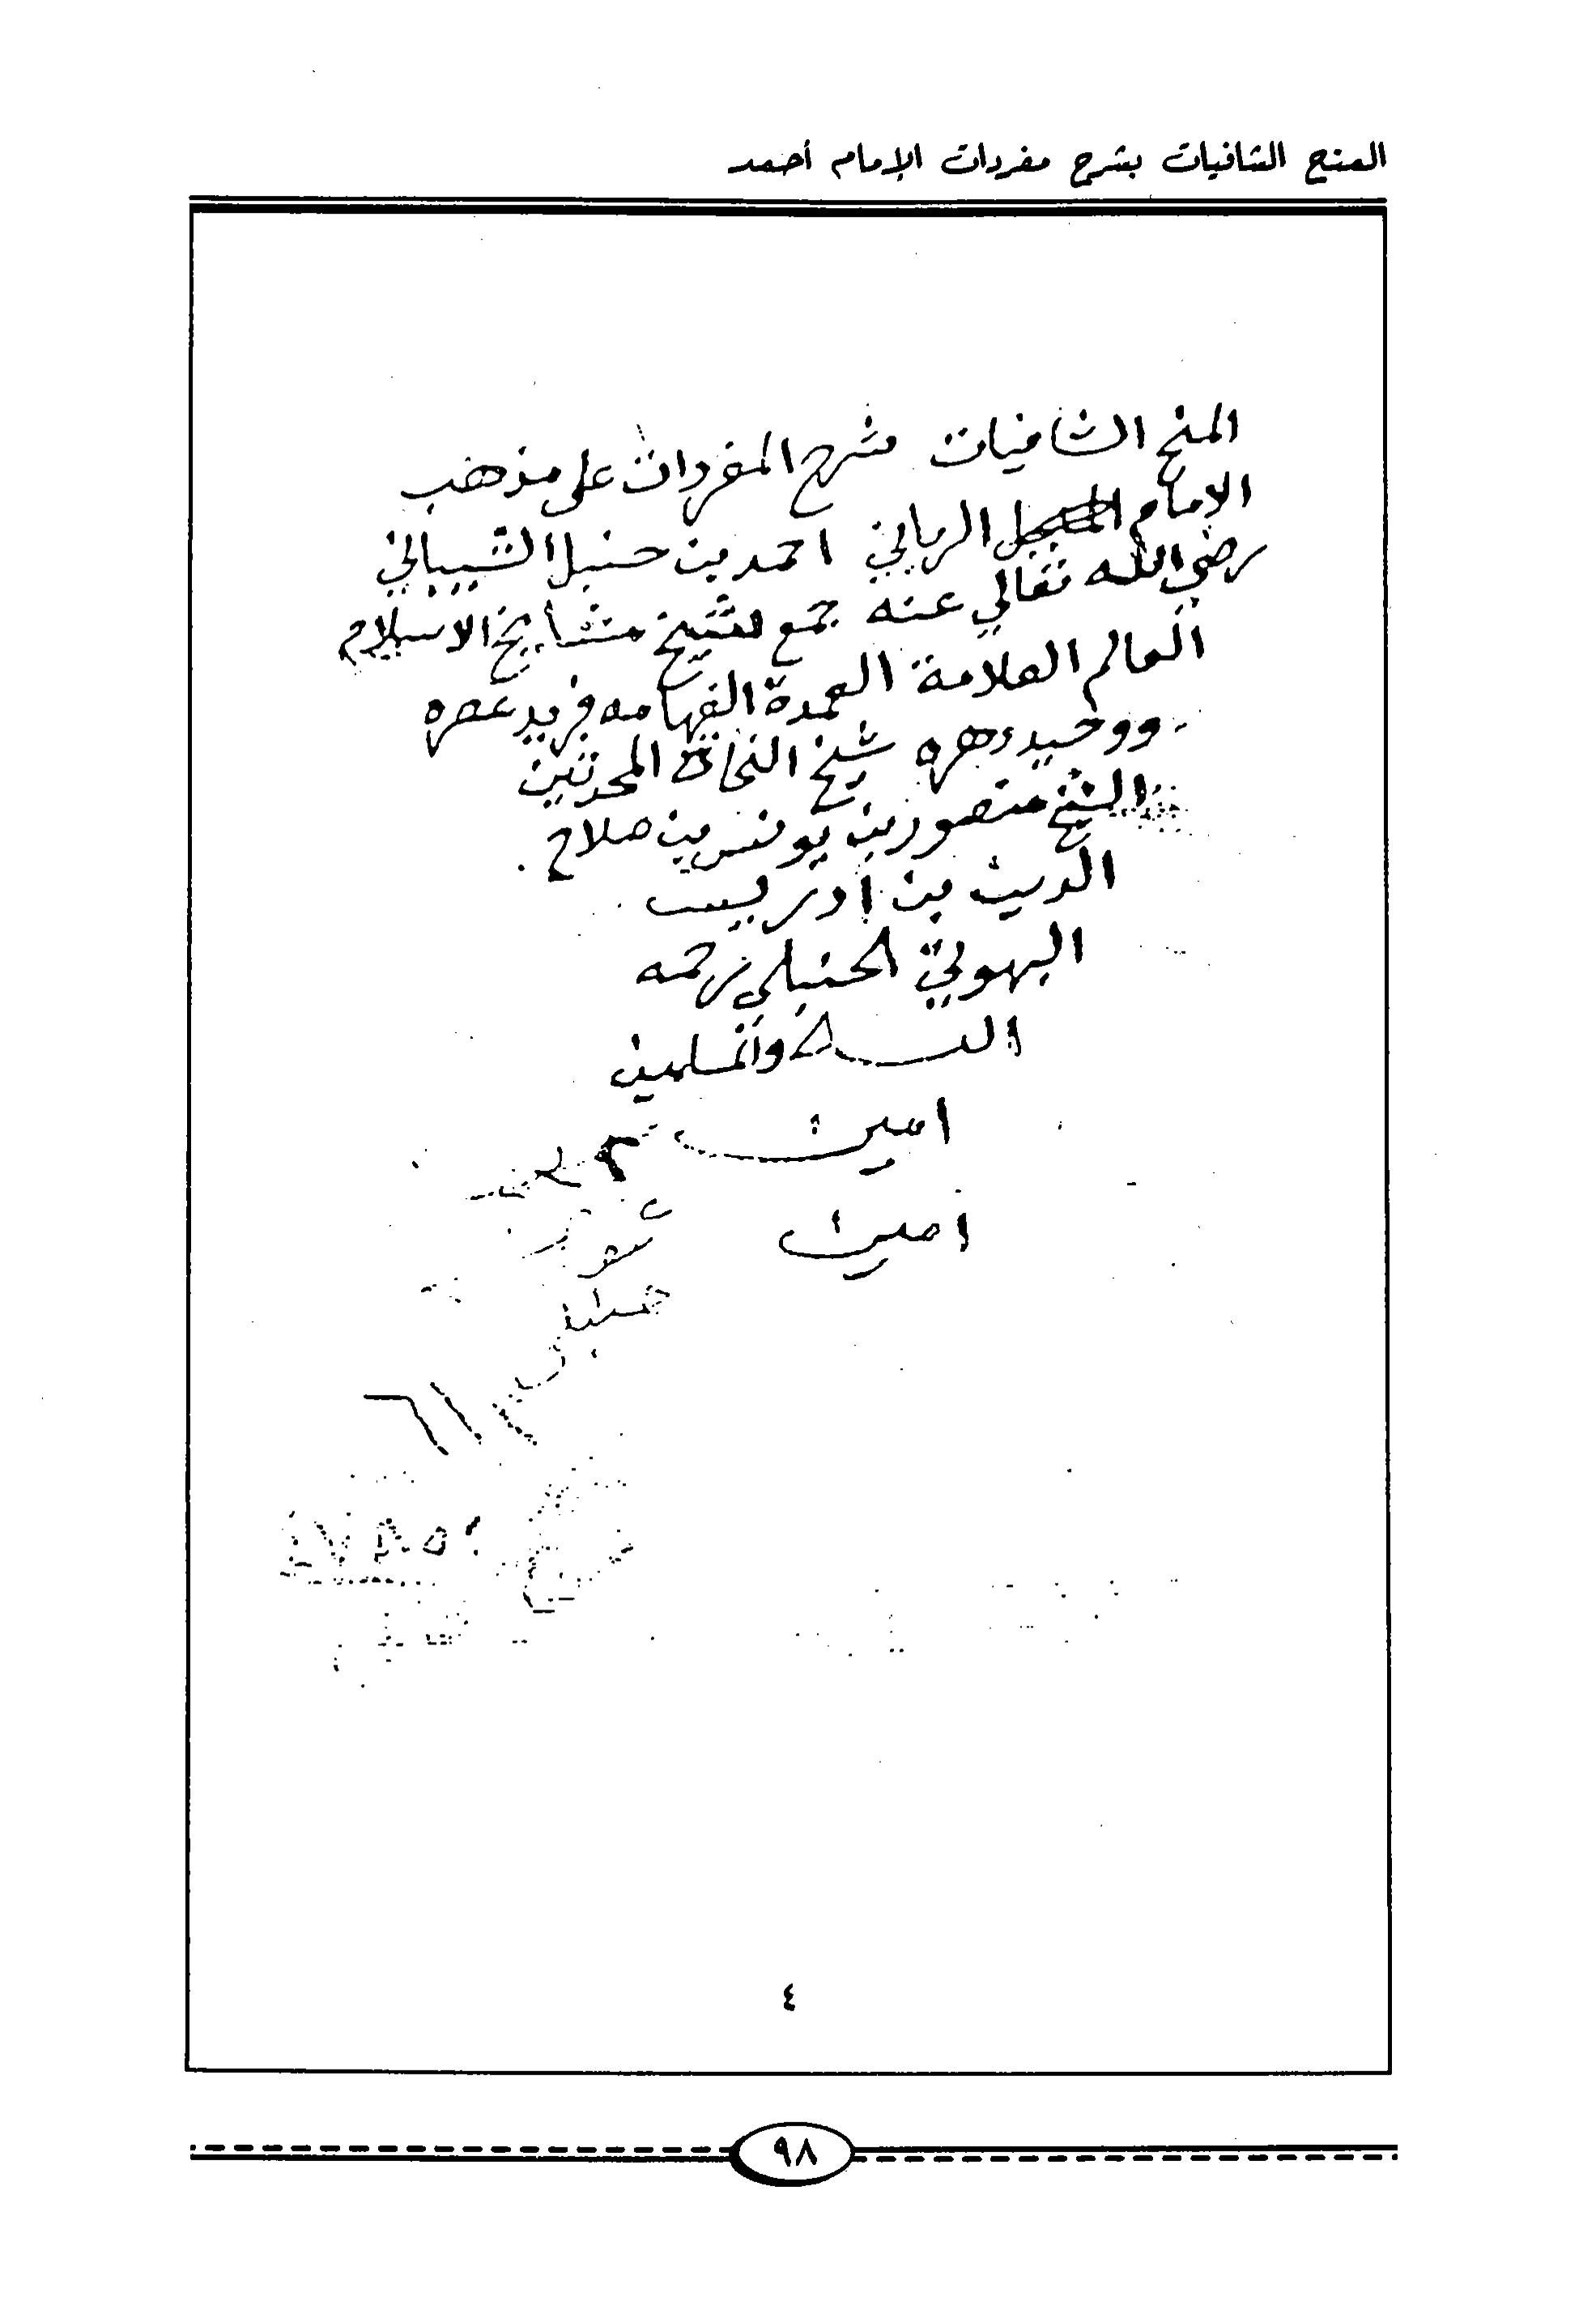 المنح الشافيات بشرح مفردات الإمام أحمد
المنح الشافيات بشرح المفردات على مذهب
الامام المبجل الرباني احمد بن حنبل الشيباني
رضي الله تعالي عنه جمع لشيخ مشايخ الاسلام
العالم العلامة العمدة الفهامه فريد عصره
ووحيد دهره شيخ النحاة المحدثين
الشيخ منصور بن يونس بن صلاح
الدين بن ادريس
البهوتي الحنبلي رحمه
الله والمسلمين
امين
امين
٤
٩٨